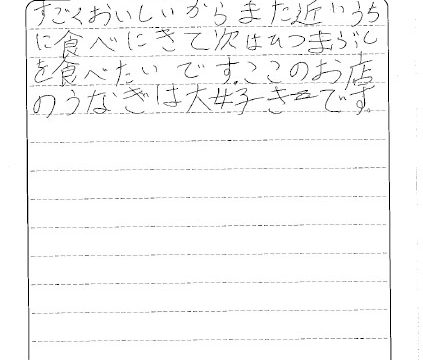 すごくおいしいからまた近いうち
に食べにきて次はひつまぶし
を食べたいです。ここのお店
のうなぎは大好きです。